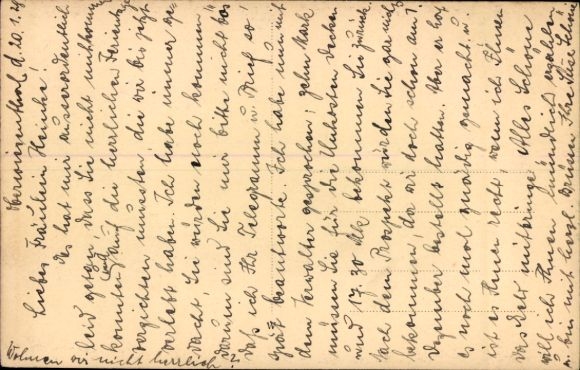 Oberwiesenthal d. 20.1.41
Liebes Fräulein Henke!
Es hat mir ausserordentlich
leid getan, dass Sie nicht mitkommen
konnten und auf die herrlichen Ferientage
verzichten mussten, die wir bis jetzt
verlebt haben. Ich habe immer ge-
dacht Sie würden noch kommen.
Darum sind Sie mir bitte nicht bös
daß ich Ihr Telegramm u. Brief so
spät beantworte. Ich habe nun mit
dem Verwalter gesprochen; zehn Mark
müssen Sie für die Unkosten decken
und 17.30 Mk bekommen Sie zurück.
Nach dem Prospekt würden Sie gar nichts
bekommen da wir doch schon am
Dezember bestellt hatten. Aber er hat
es noch mal gnädig gemacht u.
ist es Ihnen recht, wenn ich Ihnen
das Geld mitbringe? Alles Schöne
will ich Ihnen mündlich erzählen
u. bin mit herzl. Grüssen Ihre
Wohnen wir nicht herrlich?